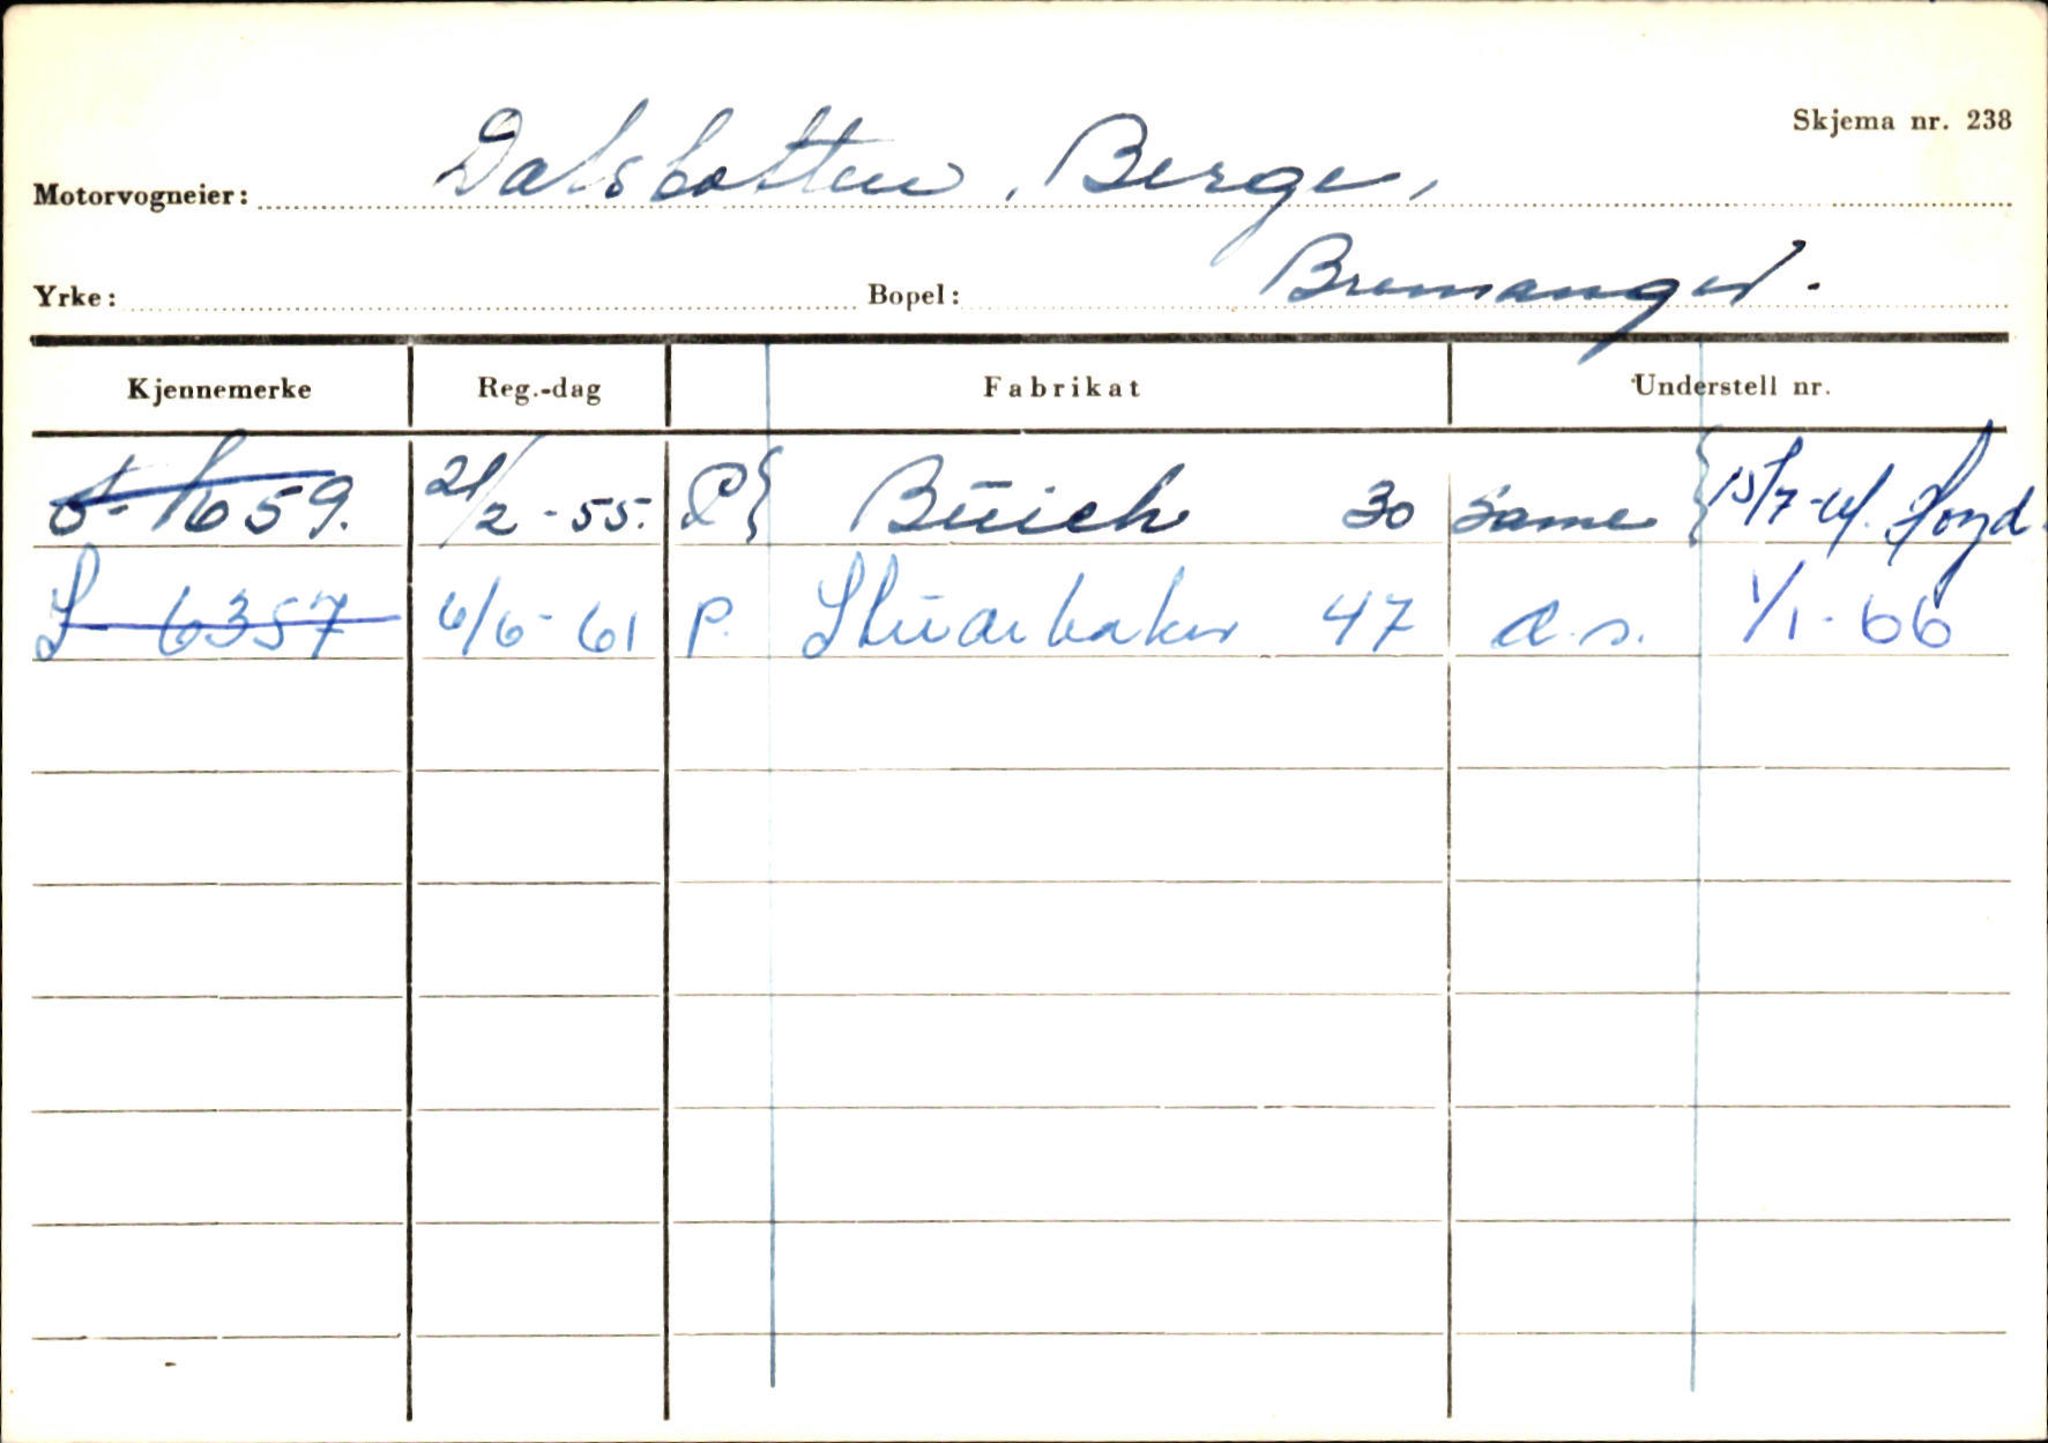 Skjema nr. 238
Motorvogneier: Dalsbotten, Berge,
Yrke: Bopel: Bremanger.
Kjennemerke Reg.-dag Fabrikat Understell nr.
S-1659. 21/2-55. P } Büick 30 same { 15/7-61.
S-6357 6/6-61 P. Stüdebaker 47 d.s. 1/1-66